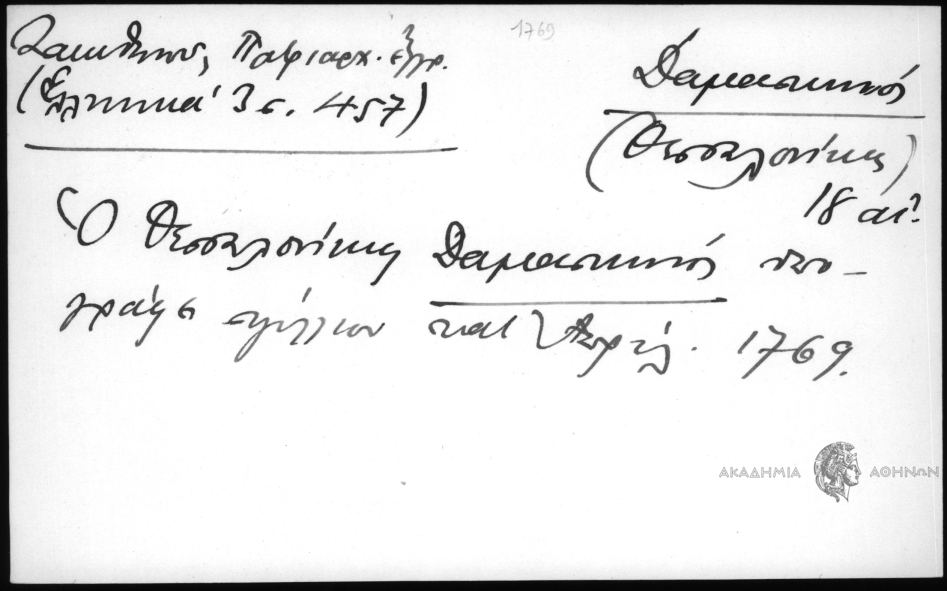 1769
Ζακυθηνοῦ, Πατριαρχ. ἔγγρ.
(Ἑλληνικά 3 σ. 457)
Δαμασκηνός
(Θεσσαλονίκης)
18 αἰ.
Ὁ Θεσσαλονίκης Δαμασκηνός ὑπο-
γράφει σιγίλλιον κατ' Ἀπρίλ. 1769.
ΑΚΑΔΗΜΙΑ ΑΘΗΝΩΝ